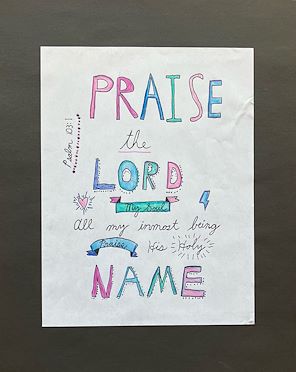 PRAISE
the
LORD
My Soul
All my inmost being
Praise His Holy
NAME
Psalm 103:1